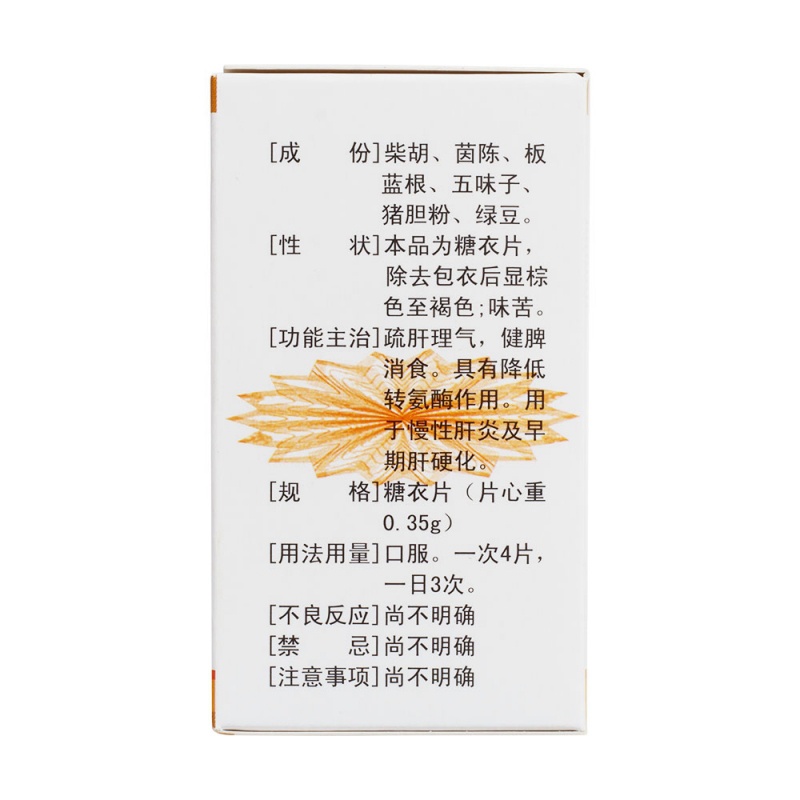 [成　　份]柴胡、茵陈、板
蓝根、五味子、
猪胆粉、绿豆。
[性　　状]本品为糖衣片，
除去包衣后显棕
色至褐色;味苦。
[功能主治]疏肝理气，健脾
消食。具有降低
转氨酶作用。用
于慢性肝炎及早
期肝硬化。
[规　　格]糖衣片（片心重
0.35g）
[用法用量]口服。一次4片，
一日3次。
[不良反应]尚不明确
[禁　　忌]尚不明确
[注意事项]尚不明确